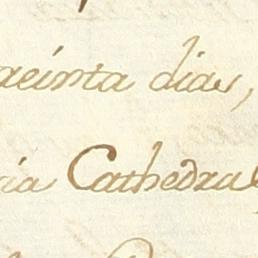 aeinta dias,
cia Cathedral